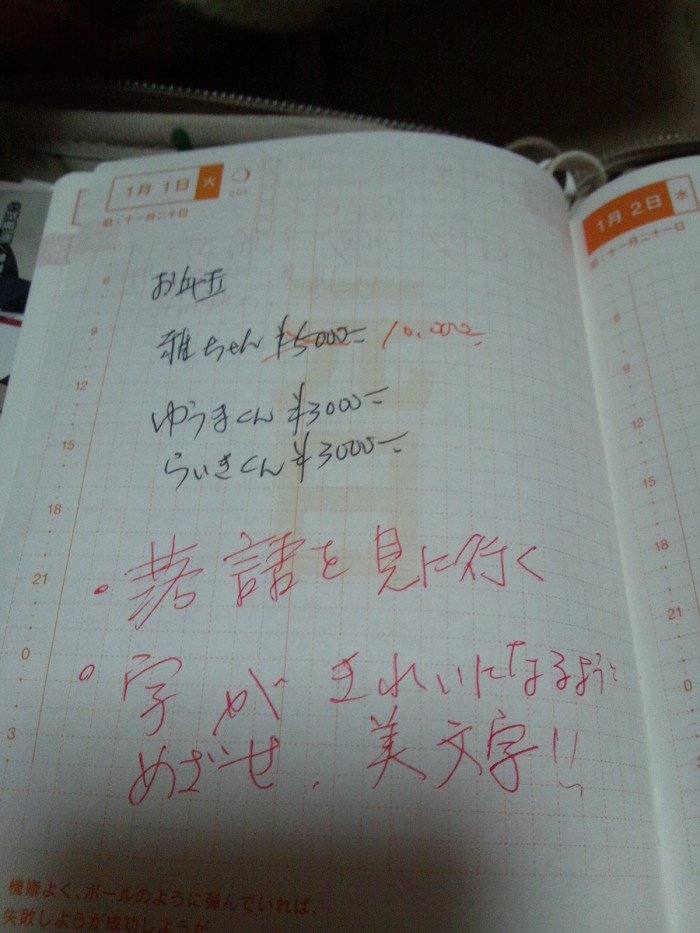 1月 1日 火
001
旧:十一月二十日
1月 2日 水
旧:十一月二十一日
元日
お年玉
雅ちゃん ¥5000- 10.000-
ゆうまくん ¥3000-
らいきくん ¥3000-
・落語を見に行く
・字が きれいになるように
めざせ、美文字!!
6
9
12
15
18
21
0
3
6
9
12
15
18
21
0
機嫌よく、ボールのように弾んでいれば、
失敗しようが成功しようが